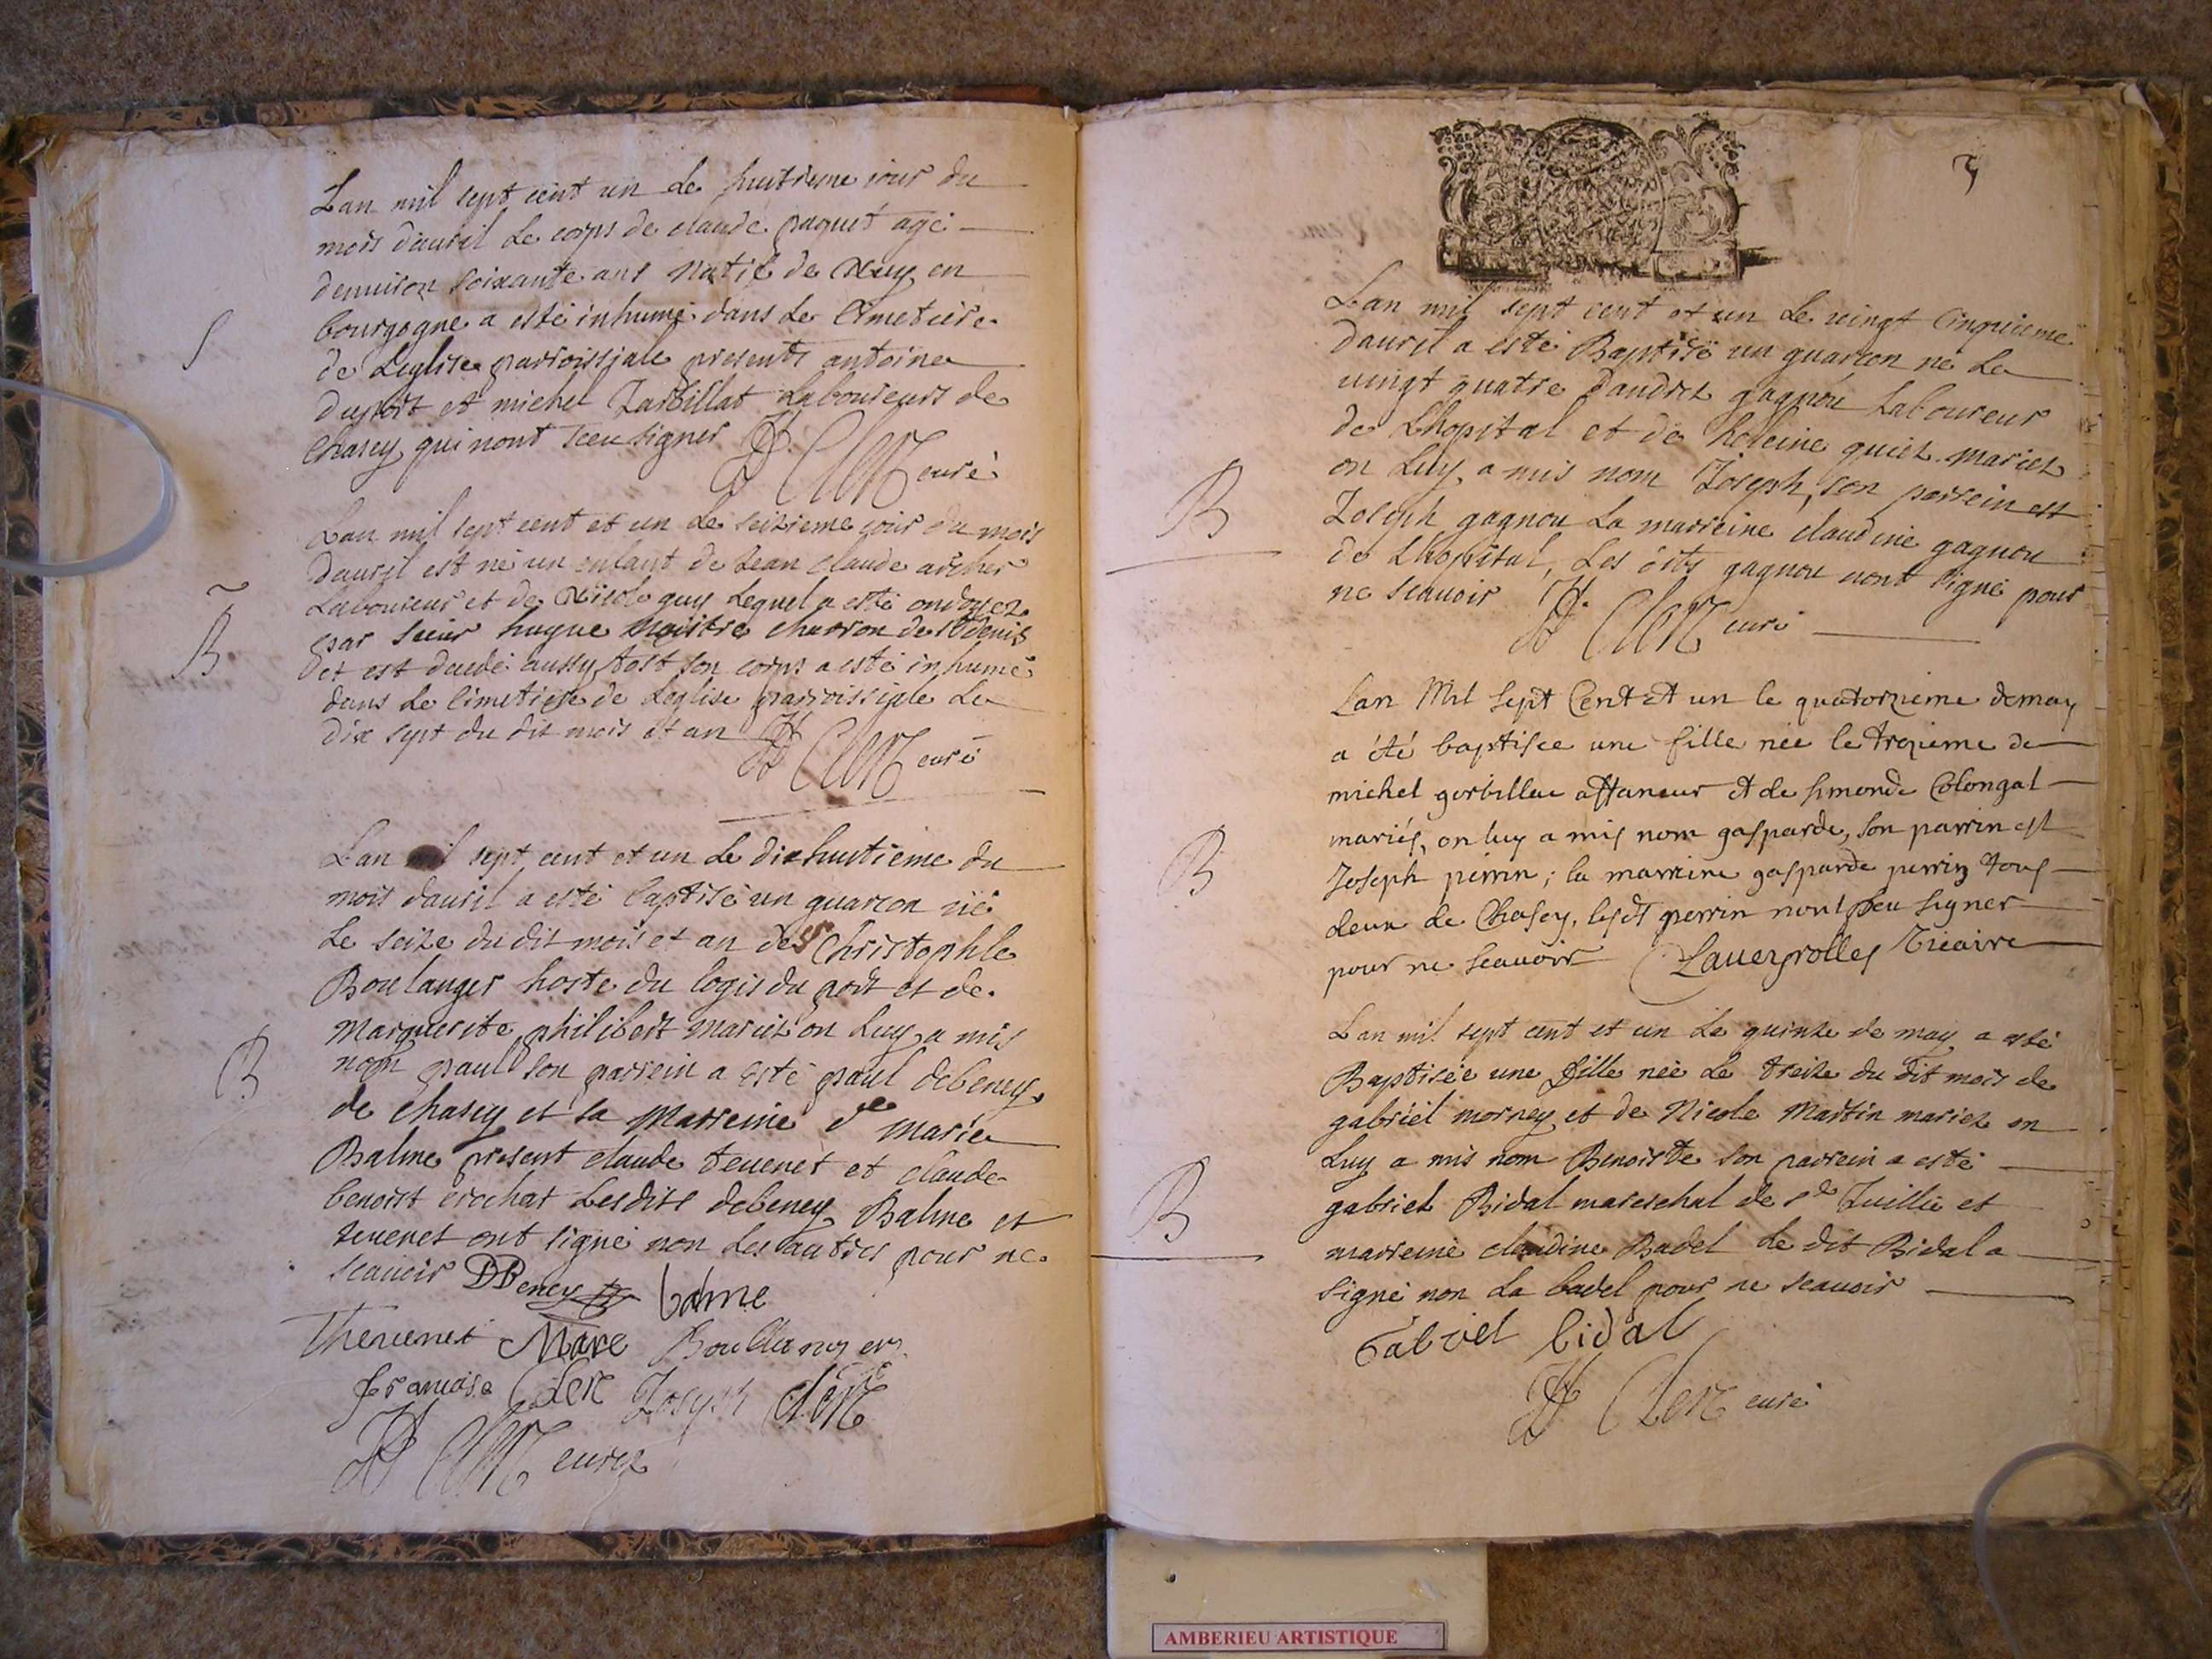 Lan mil sept cent un Le huitieme iour du
mois dauril Le corps de claude paquet agé
denuiron soixante ans Natif de Nuy en
bourgogne a esté inhumé dans Le Cimetiere
de Leglise parroissiale presents antoine
duport et michel Laboureurs de
Chasey qui nont sceu signer Clerc curé
S
Lan mil sept cent et un Le seizieme iour du mois
dauril est né un enfant de Jean Claude archer
Laboureur et de Nicole guy Lequel a esté ondoyez
par sieur hugue Maistre charron de st denis
et est decedé aussy tost son corps a esté inhumé
dans Le Cimetiere de Leglise parroissiale Le
dix sept du dit mois et an Clerc curé
B
Lan mil sept cent et un Le dixhuitieme du
mois dauril a esté baptisé un guarcon né
Le seize du dit mois et an de Sr Christophle
Boulanger hoste du logis du port et de
Marguerite philibert mariez on Luy a mis
nom paul son parrein a esté paul debeney
de chasey et la Marreine dlle marie
Balme present claude teuenet et claude
benoist crochat Lesdits debeney Balme et
teuenet ont signé non Les autres pour ne
scauoir DBeney balme
B
Theuenet Mare Boullanger
francoise Clerc Joseph Clerc
Clerc curez
3
Lan mil sept cent et un Le uingt Cinquieme
dauril a esté Baptisé un guarcon né Le
uingt quatre dandré gagnou Laboureur
de Lhopital et de heleine quiez mariez
on Luy a mis nom Joseph, son parrein est
Joseph gagnou La marreine claudine gagnou
de Lhopital, Les dits gagnou nont signé pour
ne scauoir Clerc curé
B
Lan Mil Sept Cent et un le quatorzieme de may
a été baptisée une fille née le trezieme de
michel gorbillac affaneur et de simonde Colongat
mariés, on luy a mis nom gasparde, son parrin est
Joseph perrin; la marrine gasparde perrin tous
deux de Chasey, lesdts perrin nont sceu signer
pour ne scauoir Lauergrolles Vicaire
B
Lan mil sept cent et un Le quinze de may a esté
Baptisée une fille née Le treize du dit mois de
gabriel morney et de Nicole Martin mariez on
Luy a mis nom Benoiste son parrein a esté
gabriel Bidal mareschal de ste Juillie et
marreine claudine Badel Le dit Bidal a
signé non La badel pour ne scauoir
B
Gabriel bidal
Clerc curé
AMBERIEU ARTISTIQUE